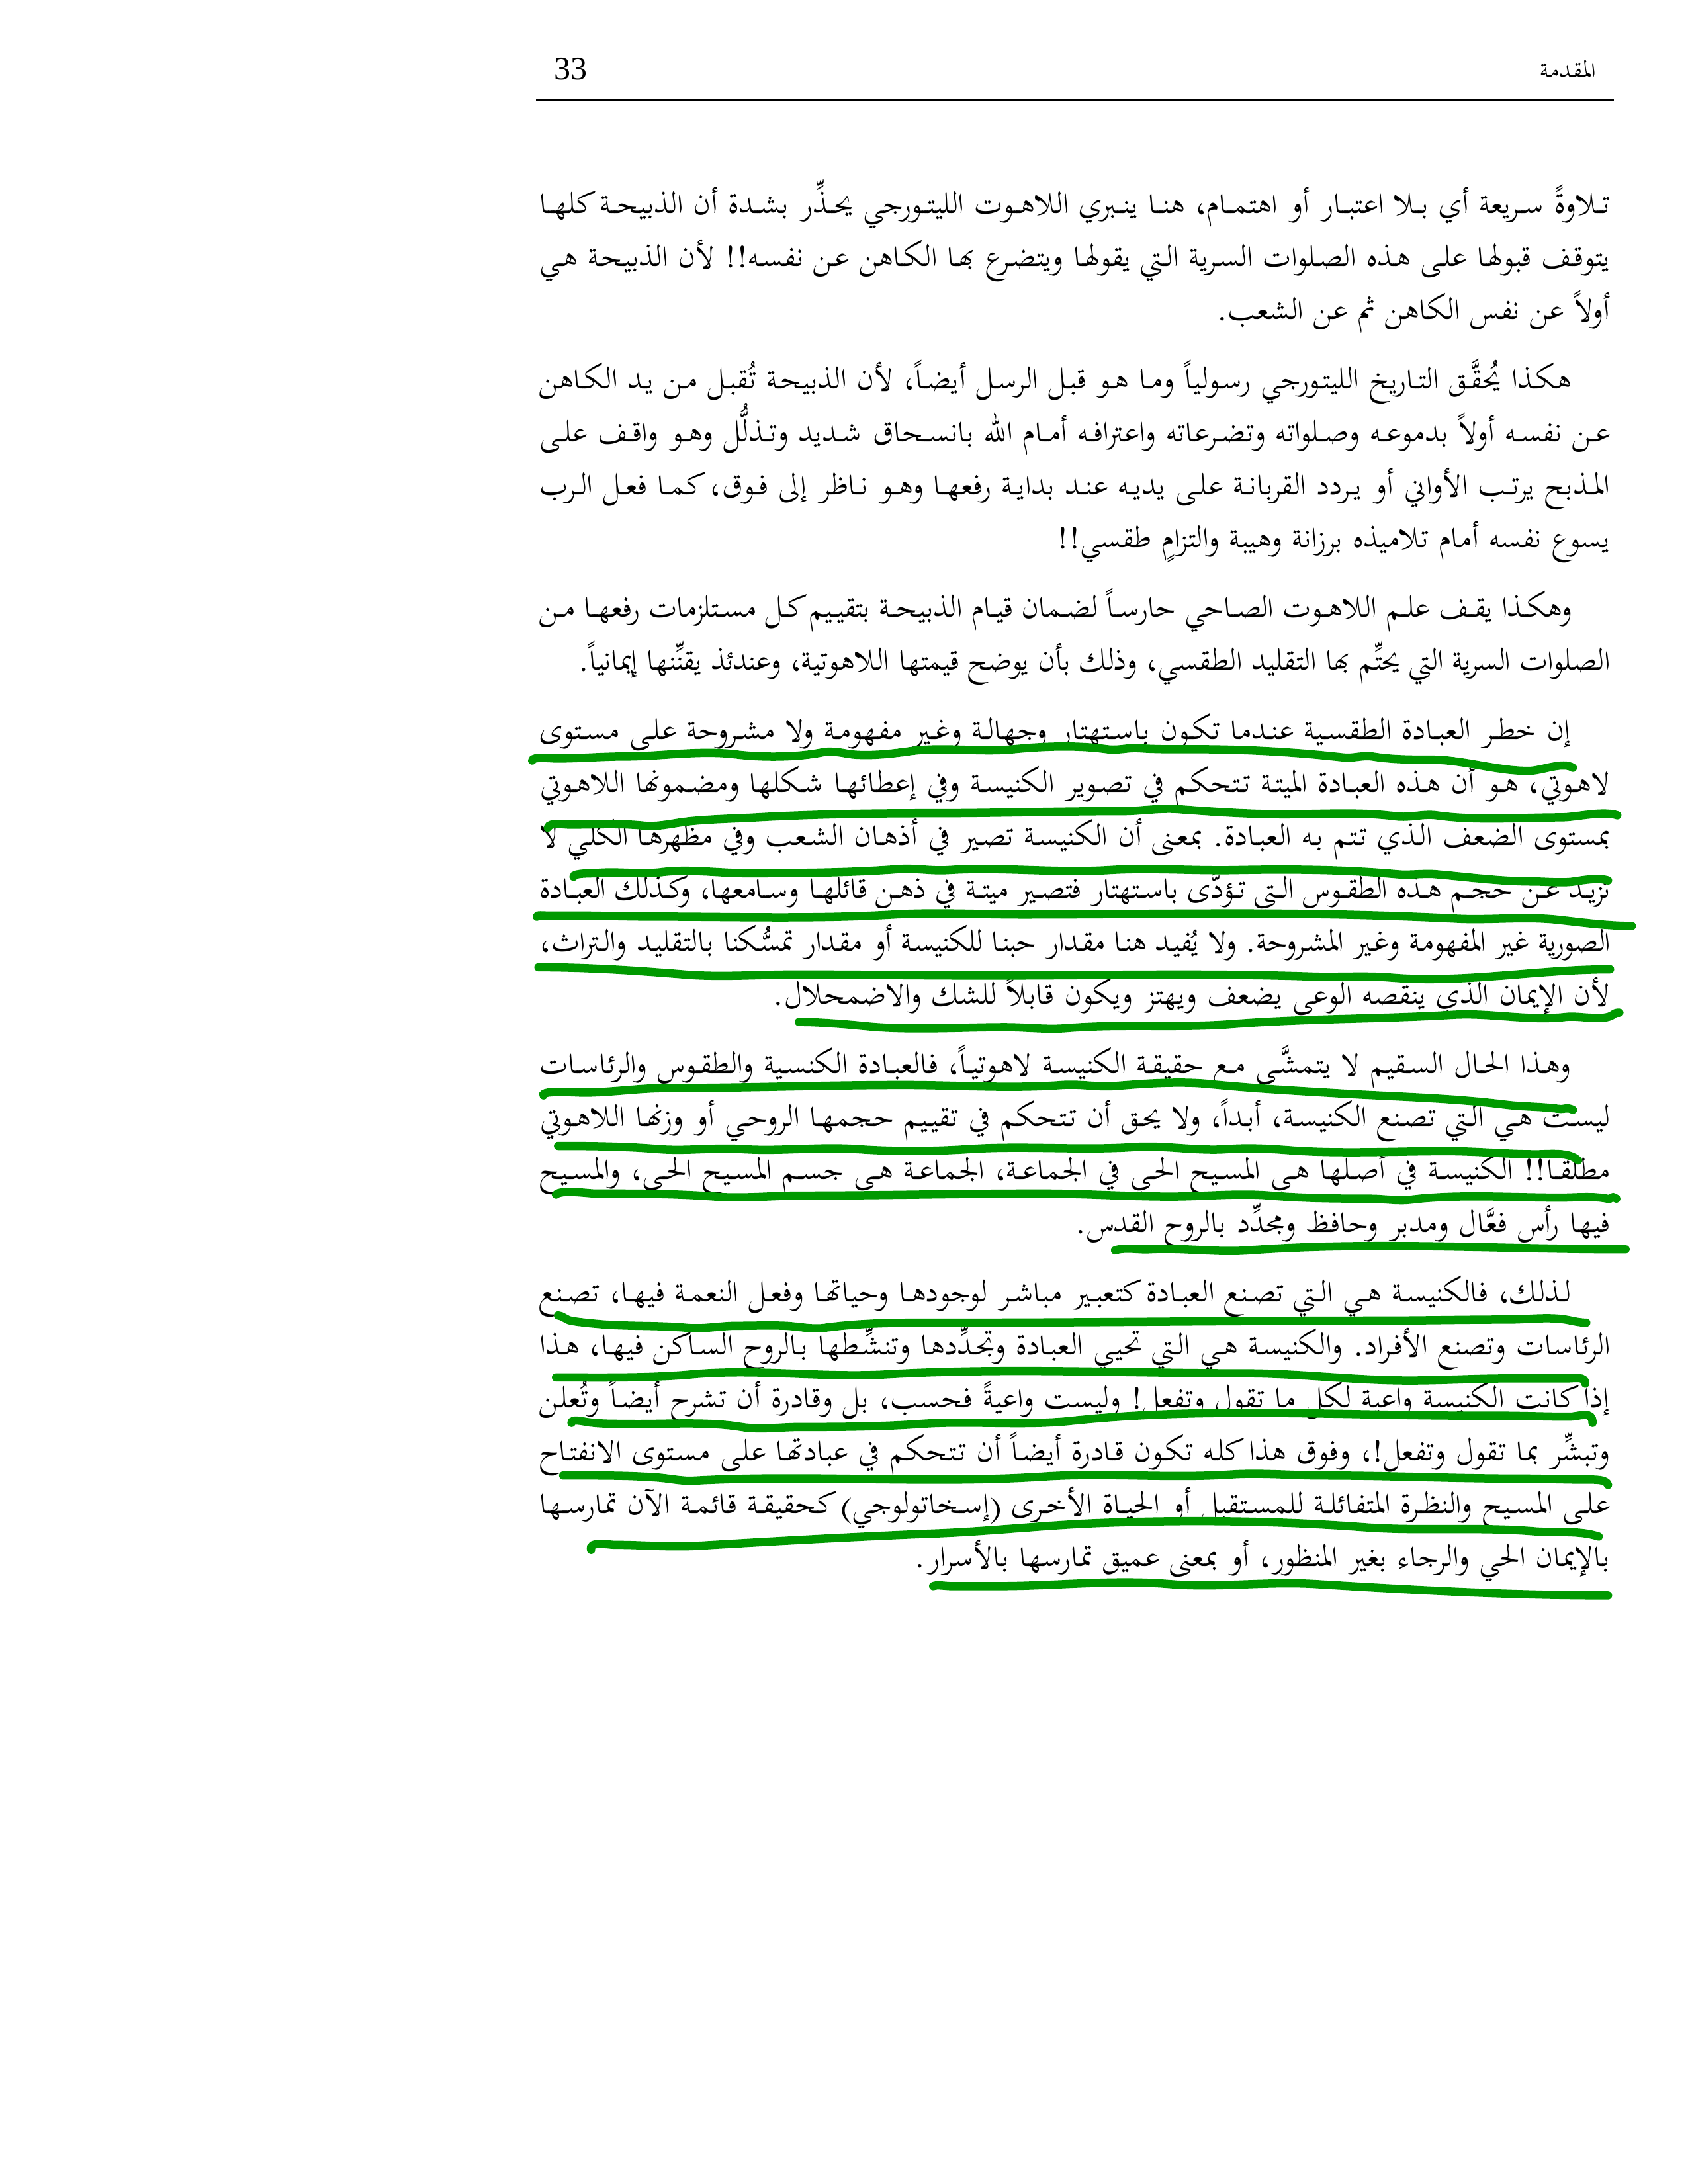 المقدمة 33
تلاوةً سريعة أي بلا اعتبار أو اهتمام، هنا ينبري اللاهوت الليتورجي يحذِّر بشدة أن الذبيحة كلها
يتوقف قبولها على هذه الصلوات السرية التي يقولها ويتضرع بها الكاهن عن نفسه!! لأن الذبيحة هي
أولاً عن نفس الكاهن ثم عن الشعب.
هكذا يُحقَّق التاريخ الليتورجي رسولياً وما هو قبل الرسل أيضاً، لأن الذبيحة تُقبل من يد الكاهن
عن نفسه أولاً بدموعه وصلواته وتضرعاته واعترافه أمام الله بانسحاق شديد وتذلُّل وهو واقف على
المذبح يرتب الأواني أو يردد القربانة على يديه عند بداية رفعها وهو ناظر إلى فوق، كما فعل الرب
يسوع نفسه أمام تلاميذه برزانة وهيبة والتزامٍ طقسي!!
وهكذا يقف علم اللاهوت الصاحي حارساً لضمان قيام الذبيحة بتقييم كل مستلزمات رفعها من
الصلوات السرية التي يحتِّم بها التقليد الطقسي، وذلك بأن يوضح قيمتها اللاهوتية، وعندئذ يقنِّنها إيمانياً.
إن خطر العبادة الطقسية عندما تكون باستهتار وجهالة وغير مفهومة ولا مشروحة على مستوى
لاهوتي، هو أن هذه العبادة الميتة تتحكم في تصوير الكنيسة وفي إعطائها شكلها ومضمونها اللاهوتي
بمستوى الضعف الذي تتم به العبادة. بمعنى أن الكنيسة تصير في أذهان الشعب وفي مظهرها الكلي لا
تزيد عن حجم هذه الطقوس التي تؤدَّى باستهتار فتصير ميتة في ذهن قائلها وسامعها، وكذلك العبادة
الصورية غير المفهومة وغير المشروحة. ولا يُفيد هنا مقدار حبنا للكنيسة أو مقدار تمسُّكنا بالتقليد والتراث،
لأن الإيمان الذي ينقصه الوعي يضعف ويهتز ويكون قابلاً للشك والاضمحلال.
وهذا الحال السقيم لا يتمشَّى مع حقيقة الكنيسة لاهوتياً، فالعبادة الكنسية والطقوس والرئاسات
ليست هي التي تصنع الكنيسة، أبداً، ولا يحق أن تتحكم في تقييم حجمها الروحي أو وزنها اللاهوتي
مطلقا!! الكنيسة في أصلها هي المسيح الحي في الجماعة، الجماعة هي جسم المسيح الحي، والمسيح
فيها رأس فعَّال ومدبر وحافظ ومجدِّد بالروح القدس.
لذلك، فالكنيسة هي التي تصنع العبادة كتعبير مباشر لوجودها وحياتها وفعل النعمة فيها، تصنع
الرئاسات وتصنع الأفراد. والكنيسة هي التي تحيي العبادة وتجدِّدها وتنشِّطها بالروح الساكن فيها، هذا
إذا كانت الكنيسة واعية لكل ما تقول وتفعل! وليست واعيةً فحسب، بل وقادرة أن تشرح أيضاً وتُعلن
وتبشِّر بما تقول وتفعل!، وفوق هذا كله تكون قادرة أيضاً أن تتحكم في عبادتها على مستوى الانفتاح
على المسيح والنظرة المتفائلة للمستقبل أو الحياة الأخرى (إسخاتولوجي) كحقيقة قائمة الآن تمارسها
بالإيمان الحي والرجاء بغير المنظور، أو بمعنى عميق تمارسها بالأسرار.